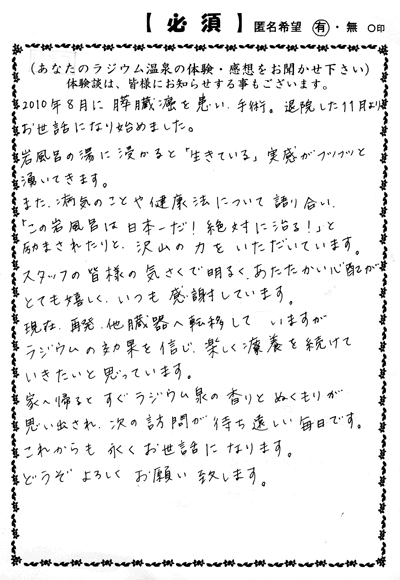 【必須】 匿名希望 有・無 ○印
(あなたのラジウム温泉の体験・感想をお聞かせ下さい)
体験談は、皆様にお知らせする事もございます。
2010年8月に膵臓癌を患い、手術。退院した11月より
お世話になり始めました。
岩風呂の湯に浸かると「生きている」実感がフツフツと
湧いてきます。
また、病気のことや健康法について語り合い、
「この岩風呂は日本一だ!絶対に治る!」と
励まされたりと、沢山の力をいただいています。
スタッフの皆様の気さくで明るく、あたたかい心配が
とても嬉しく、いつも感謝しています。
現在、再発、他臓器へ転移して いますが
ラジウムの効果を信じ、楽しく療養を続けて
いきたいと思っています。
家へ帰るとすぐラジウム泉の香りとぬくもりが
思い出され、次の訪問が待ち遠しい毎日です。
これからも永くお世話になります。
どうぞよろしくお願い致します。